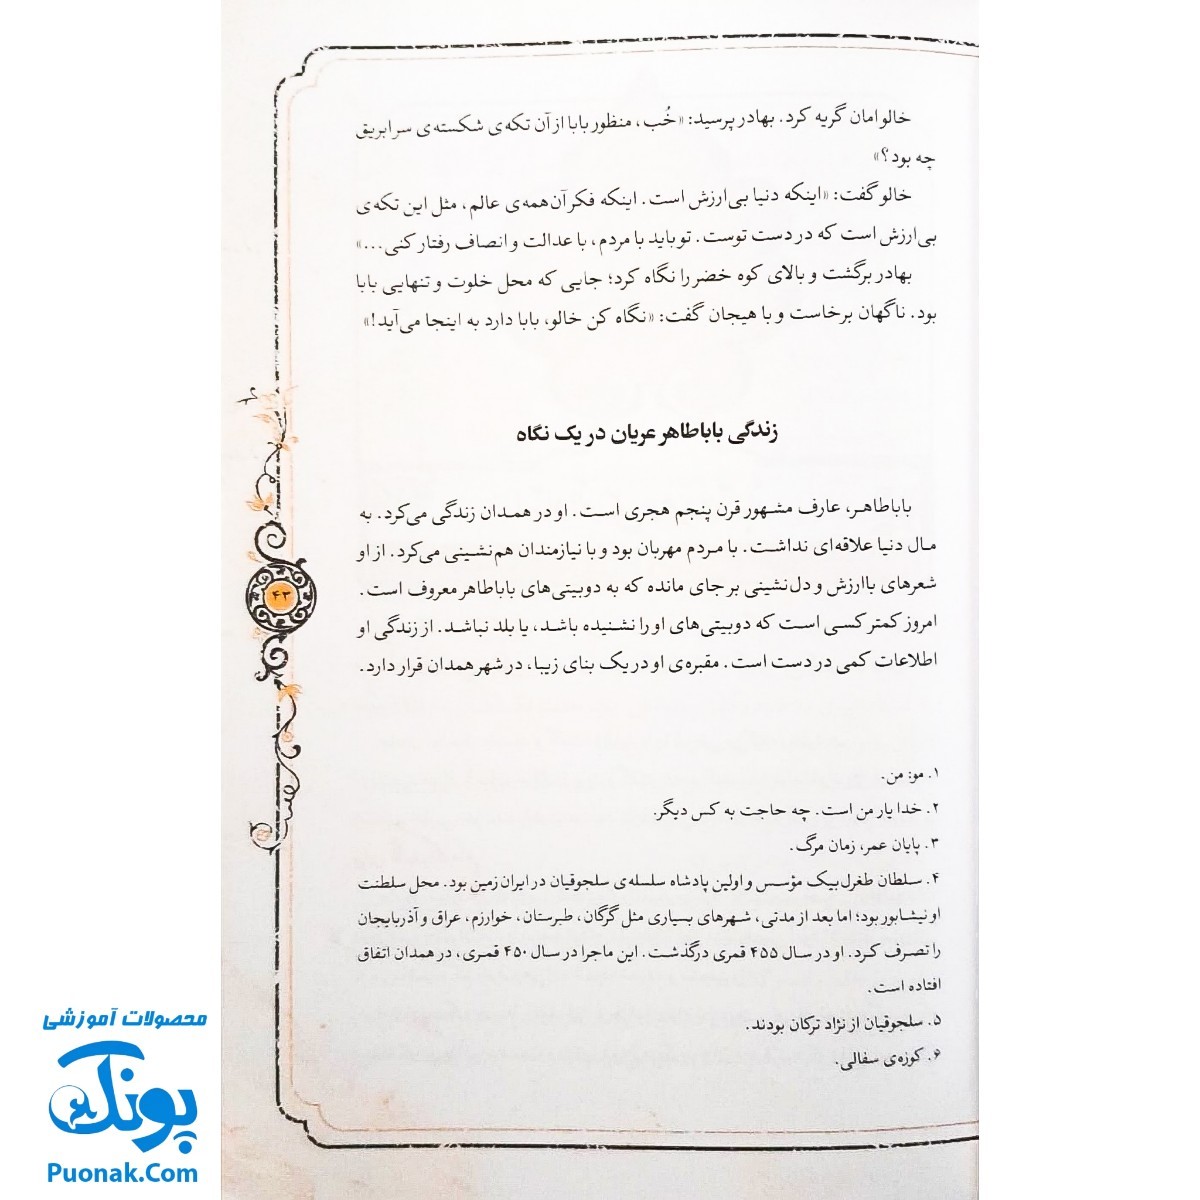 خالوامان گریه کرد. بهادر پرسید: «خُب، منظور بابا از آن تکه‌ی شکسته‌ی سر ابریق
چه بود؟»
خالو گفت: «اینکه دنیا بی‌ارزش است. اینکه فکر آن همه‌ی عالم، مثل این تکه‌ی
بی‌ارزش است که در دست توست. تو باید با مردم، با عدالت و انصاف رفتار کنی...»
بهادر برگشت و بالای کوه خضر را نگاه کرد؛ جایی که محل خلوت و تنهایی بابا
بود. ناگهان برخاست و با هیجان گفت: «نگاه کن خالو، بابا دارد به اینجا می‌آید!»
زندگی باباطاهر عریان در یک نگاه
باباطاهر، عارف مشهور قرن پنجم هجری است. او در همدان زندگی می‌کرد. به
مال دنیا علاقه‌ای نداشت. با مردم مهربان بود و با نیازمندان هم‌نشینی می‌کرد. از او
شعرهای باارزش و دل‌نشینی بر جای مانده که به دوبیتی‌های باباطاهر معروف است.
امروز کمتر کسی است که دوبیتی‌های او را نشنیده باشد، یا بلد نباشد. از زندگی او
اطلاعات کمی در دست است. مقبره‌ی او در یک بنای زیبا، در شهر همدان قرار دارد.
۴۳
۱. مو: من.
۲. خدا یار من است. چه حاجت به کس دیگر.
۳. پایان عمر، زمان مرگ.
۴. سلطان طغرل‌بیک مؤسس و اولین پادشاه سلسله‌ی سلجوقیان در ایران زمین بود. محل سلطنت
او نیشابور بود؛ اما بعد از مدتی، شهرهای بسیاری مثل گرگان، طبرستان، خوارزم، عراق و آذربایجان
را تصرف کرد. او در سال ۴۵۵ قمری درگذشت. این ماجرا در سال ۴۵۰ قمری، در همدان اتفاق
افتاده است.
۵. سلجوقیان از نژاد ترکان بودند.
۶. کوزه‌ی سفالی.
محصولات آموزشی
پونک
Puonak.Com